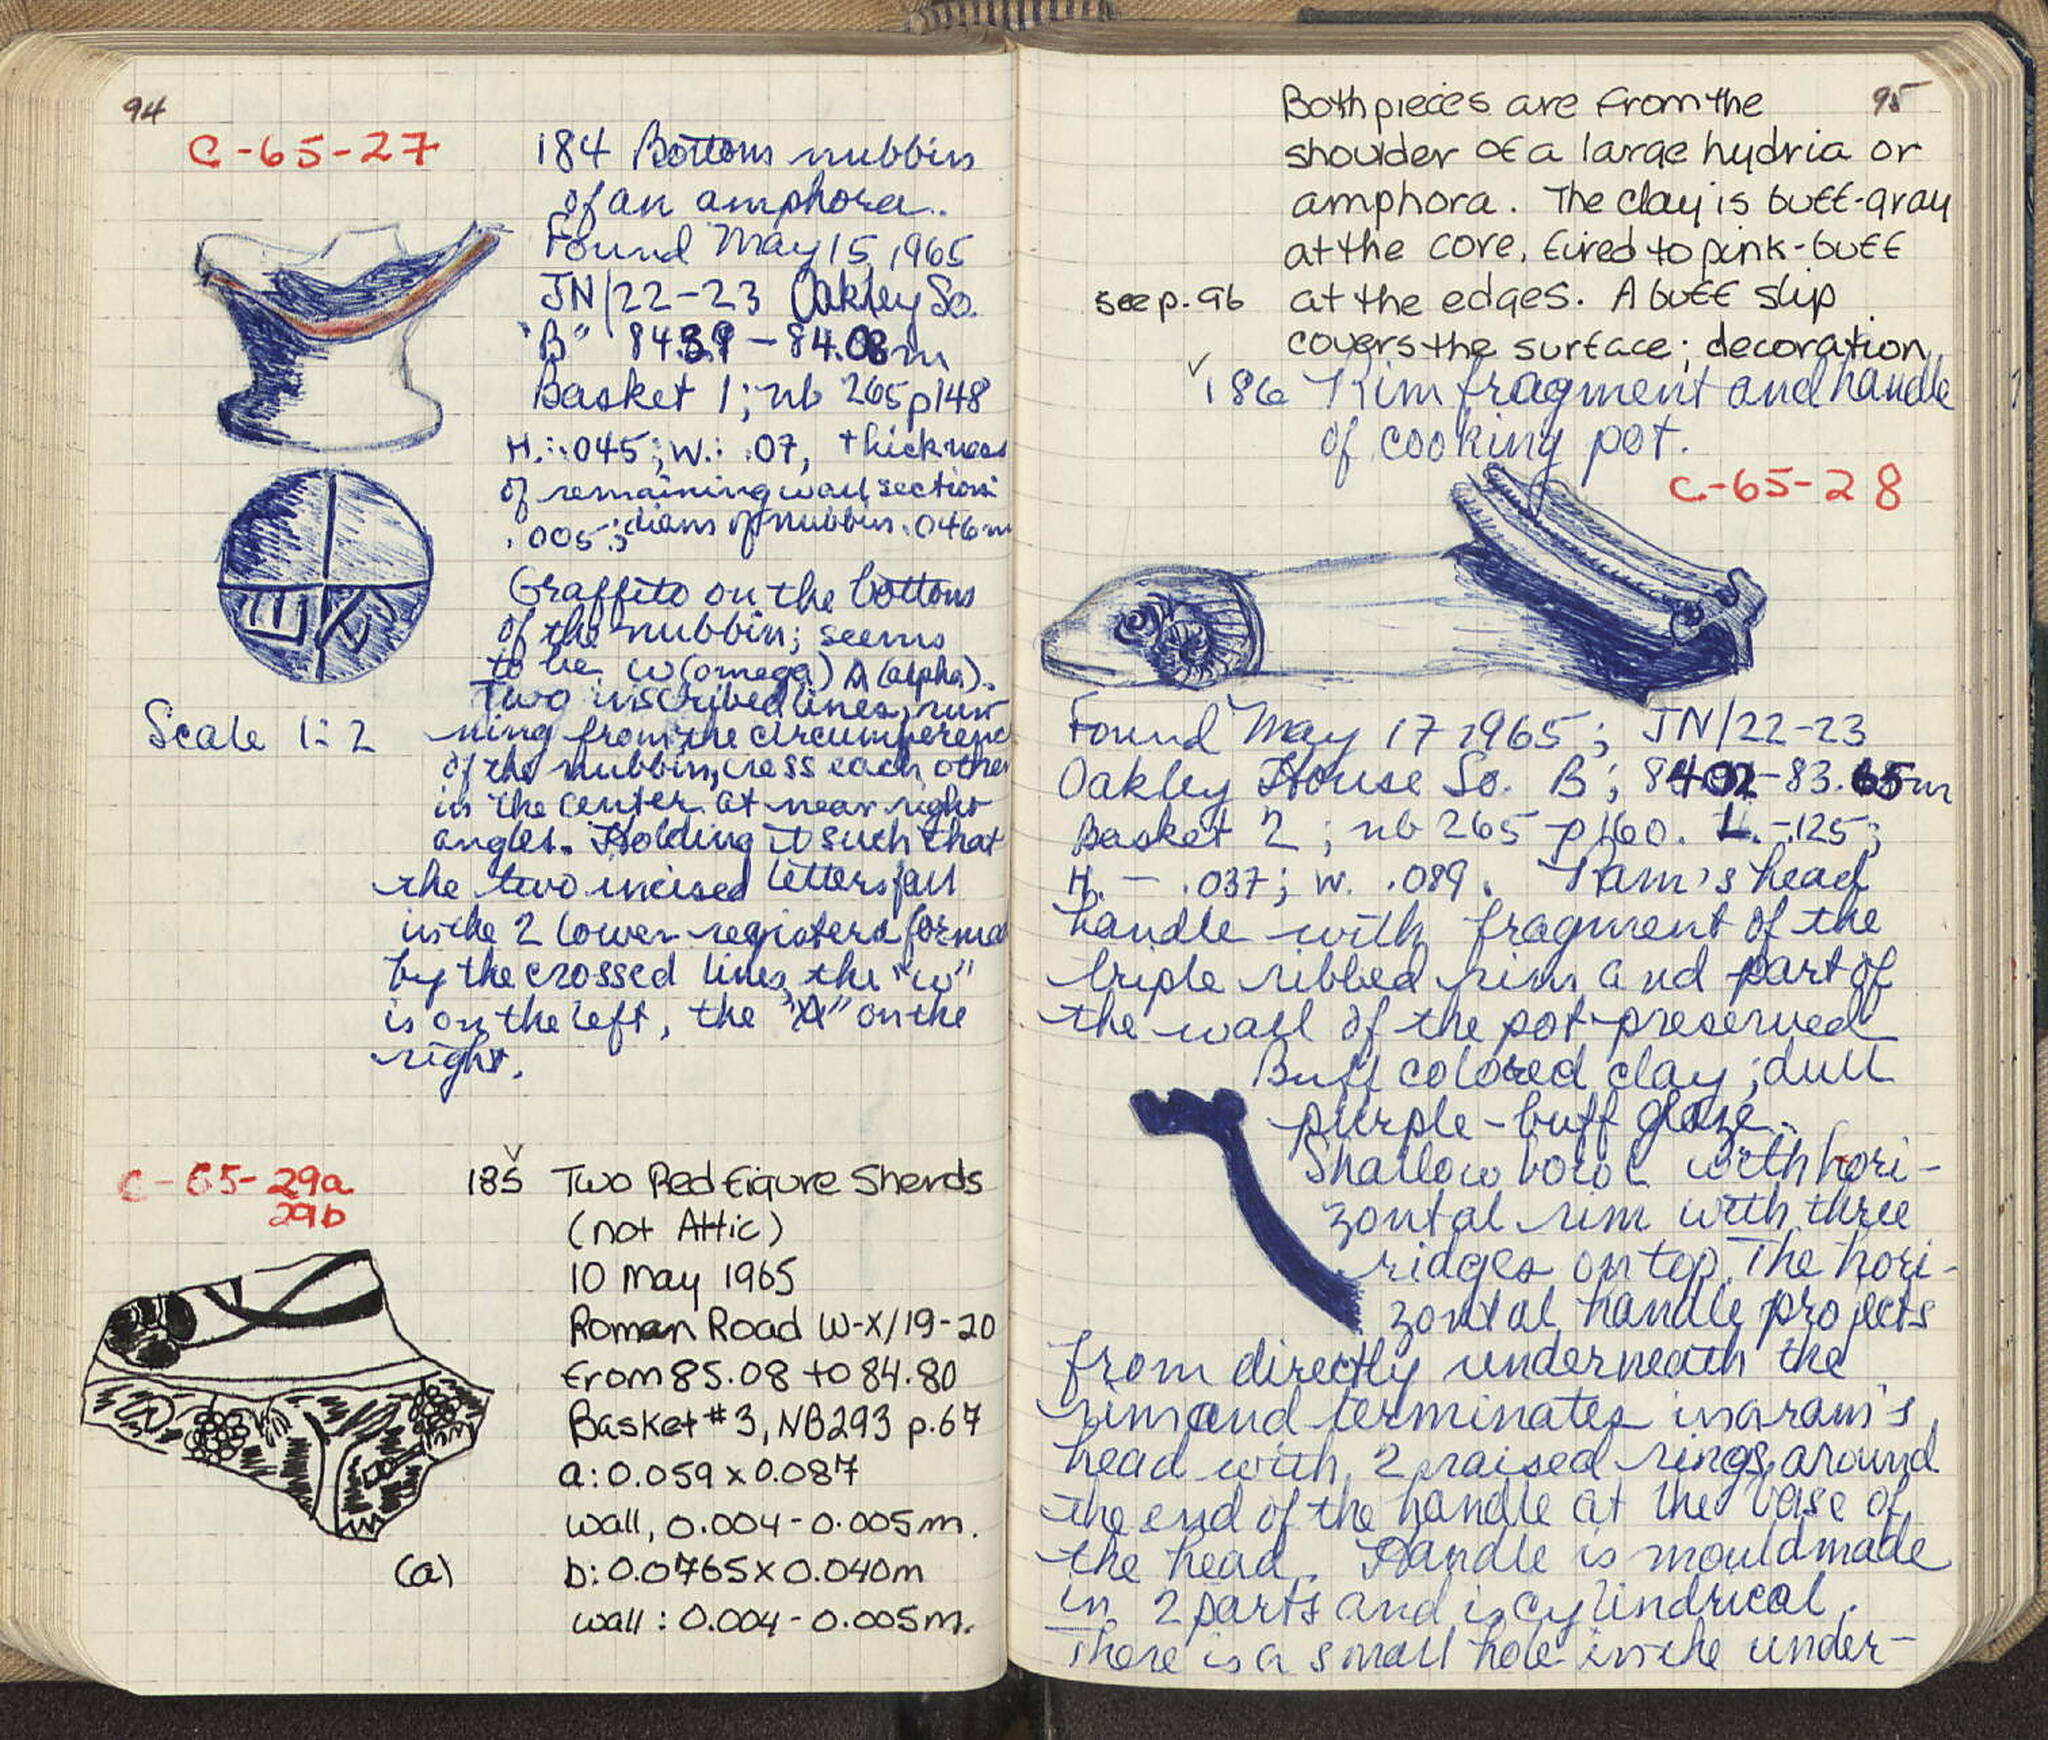 94
C-65-27
184 Bottom nubbin
of an amphora.
Found May 15, 1965
JN/22-23 Oakley So.
"B" 84.39 - 84.08 m
Basket 1; nb 265 p148
H.: .045; W.: .07, thickness
of remaining wall section:
.005; diam of nubbin .046m
Graffito on the bottom
of the nubbin; seems
to be ω (omega) A (alpha).
Two inscribed lines, run-
ning from the circumference
of the nubbin, cross each other
in the center at near right
angles. Holding it such that
the two incised letters fall
in the 2 lower registers formed
by the crossed lines, the "ω"
is on the left, the "A" on the
right.
Scale 1:2
C-65-29a
29b
185 Two Red Figure Sherds
(not Attic)
10 May 1965
Roman Road W-X/19-20
From 85.08 to 84.80
Basket #3, NB293 p.67
a: 0.059 x 0.087
wall, 0.004 - 0.005m.
b: 0.0765 x 0.040m
wall: 0.004 - 0.005m.
(a)
95
Both pieces are from the
shoulder of a large hydria or
amphora. The clay is buff-gray
at the core, fired to pink-buff
at the edges. A buff slip
covers the surface; decoration
see p. 96
186 Rim fragment and handle
of cooking pot.
C-65-28
Found May 17 1965; JN/22-23
Oakley House So. B; 84.02-83.65m
Basket 2; nb 265 p160. L. - .125;
H. - .037; W. .089. Ram's head
handle with fragment of the
triple ribbed rim and part of
the wall of the pot preserved
Buff colored clay; dull
purple-buff glaze.
Shallow bowl with hori-
zontal rim with three
ridges on top. The hori-
zontal handle projects
from directly underneath the
rim and terminates in a ram's
head with 2 raised rings around
the end of the handle at the base of
the head. Handle is mouldmade
in 2 parts and is cylindrical.
There is a small hole in the under-